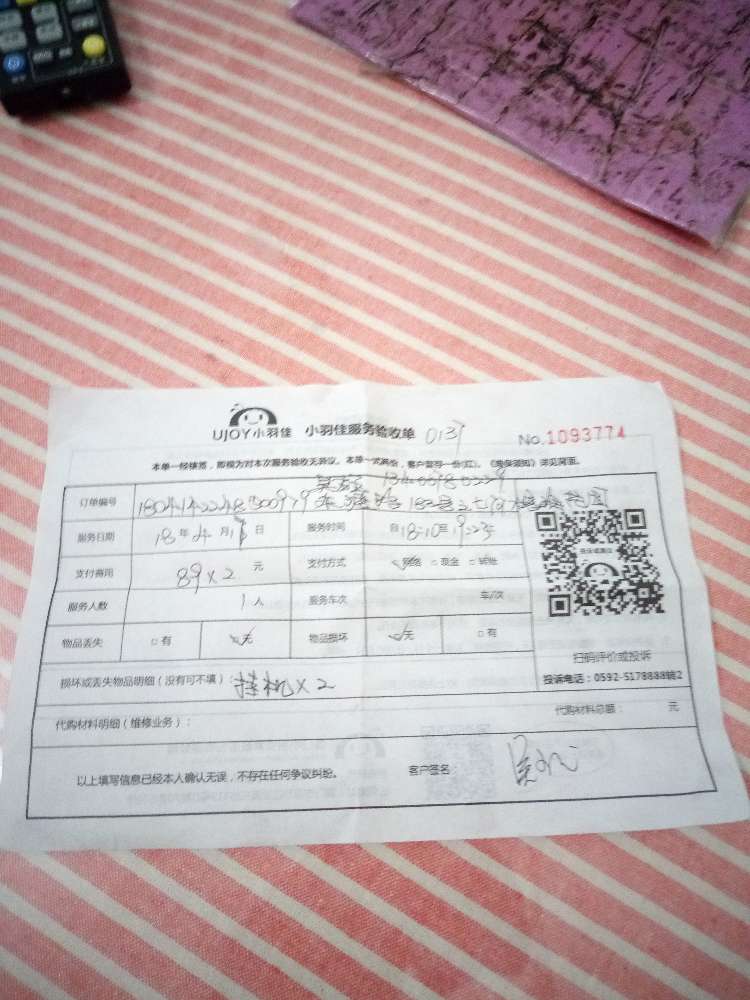 UJOY小羽佳 小羽佳服务验收单 0137 No.1093774
本单一经核签，即视为对本次服务验收无异议。本单一式两份，客户留存一份(红)。《服务须知》详见背面。
订单编号
服务日期 18年4月17日 服务时间 自18:10至19:23
支付费用 89×2 元 支付方式 网络 □现金 □转账
服务人数 1人 服务车次 车/次
物品丢失 □有 无 物品损坏 无 □有
扫码评价或投诉
投诉电话：0592-5178888转2
损坏或丢失物品明细（没有可不填）：挂机×2
代购材料明细（维修业务）： 代购材料总额： 元
以上填写信息已经本人确认无误，不存在任何争议纠纷。 客户签名